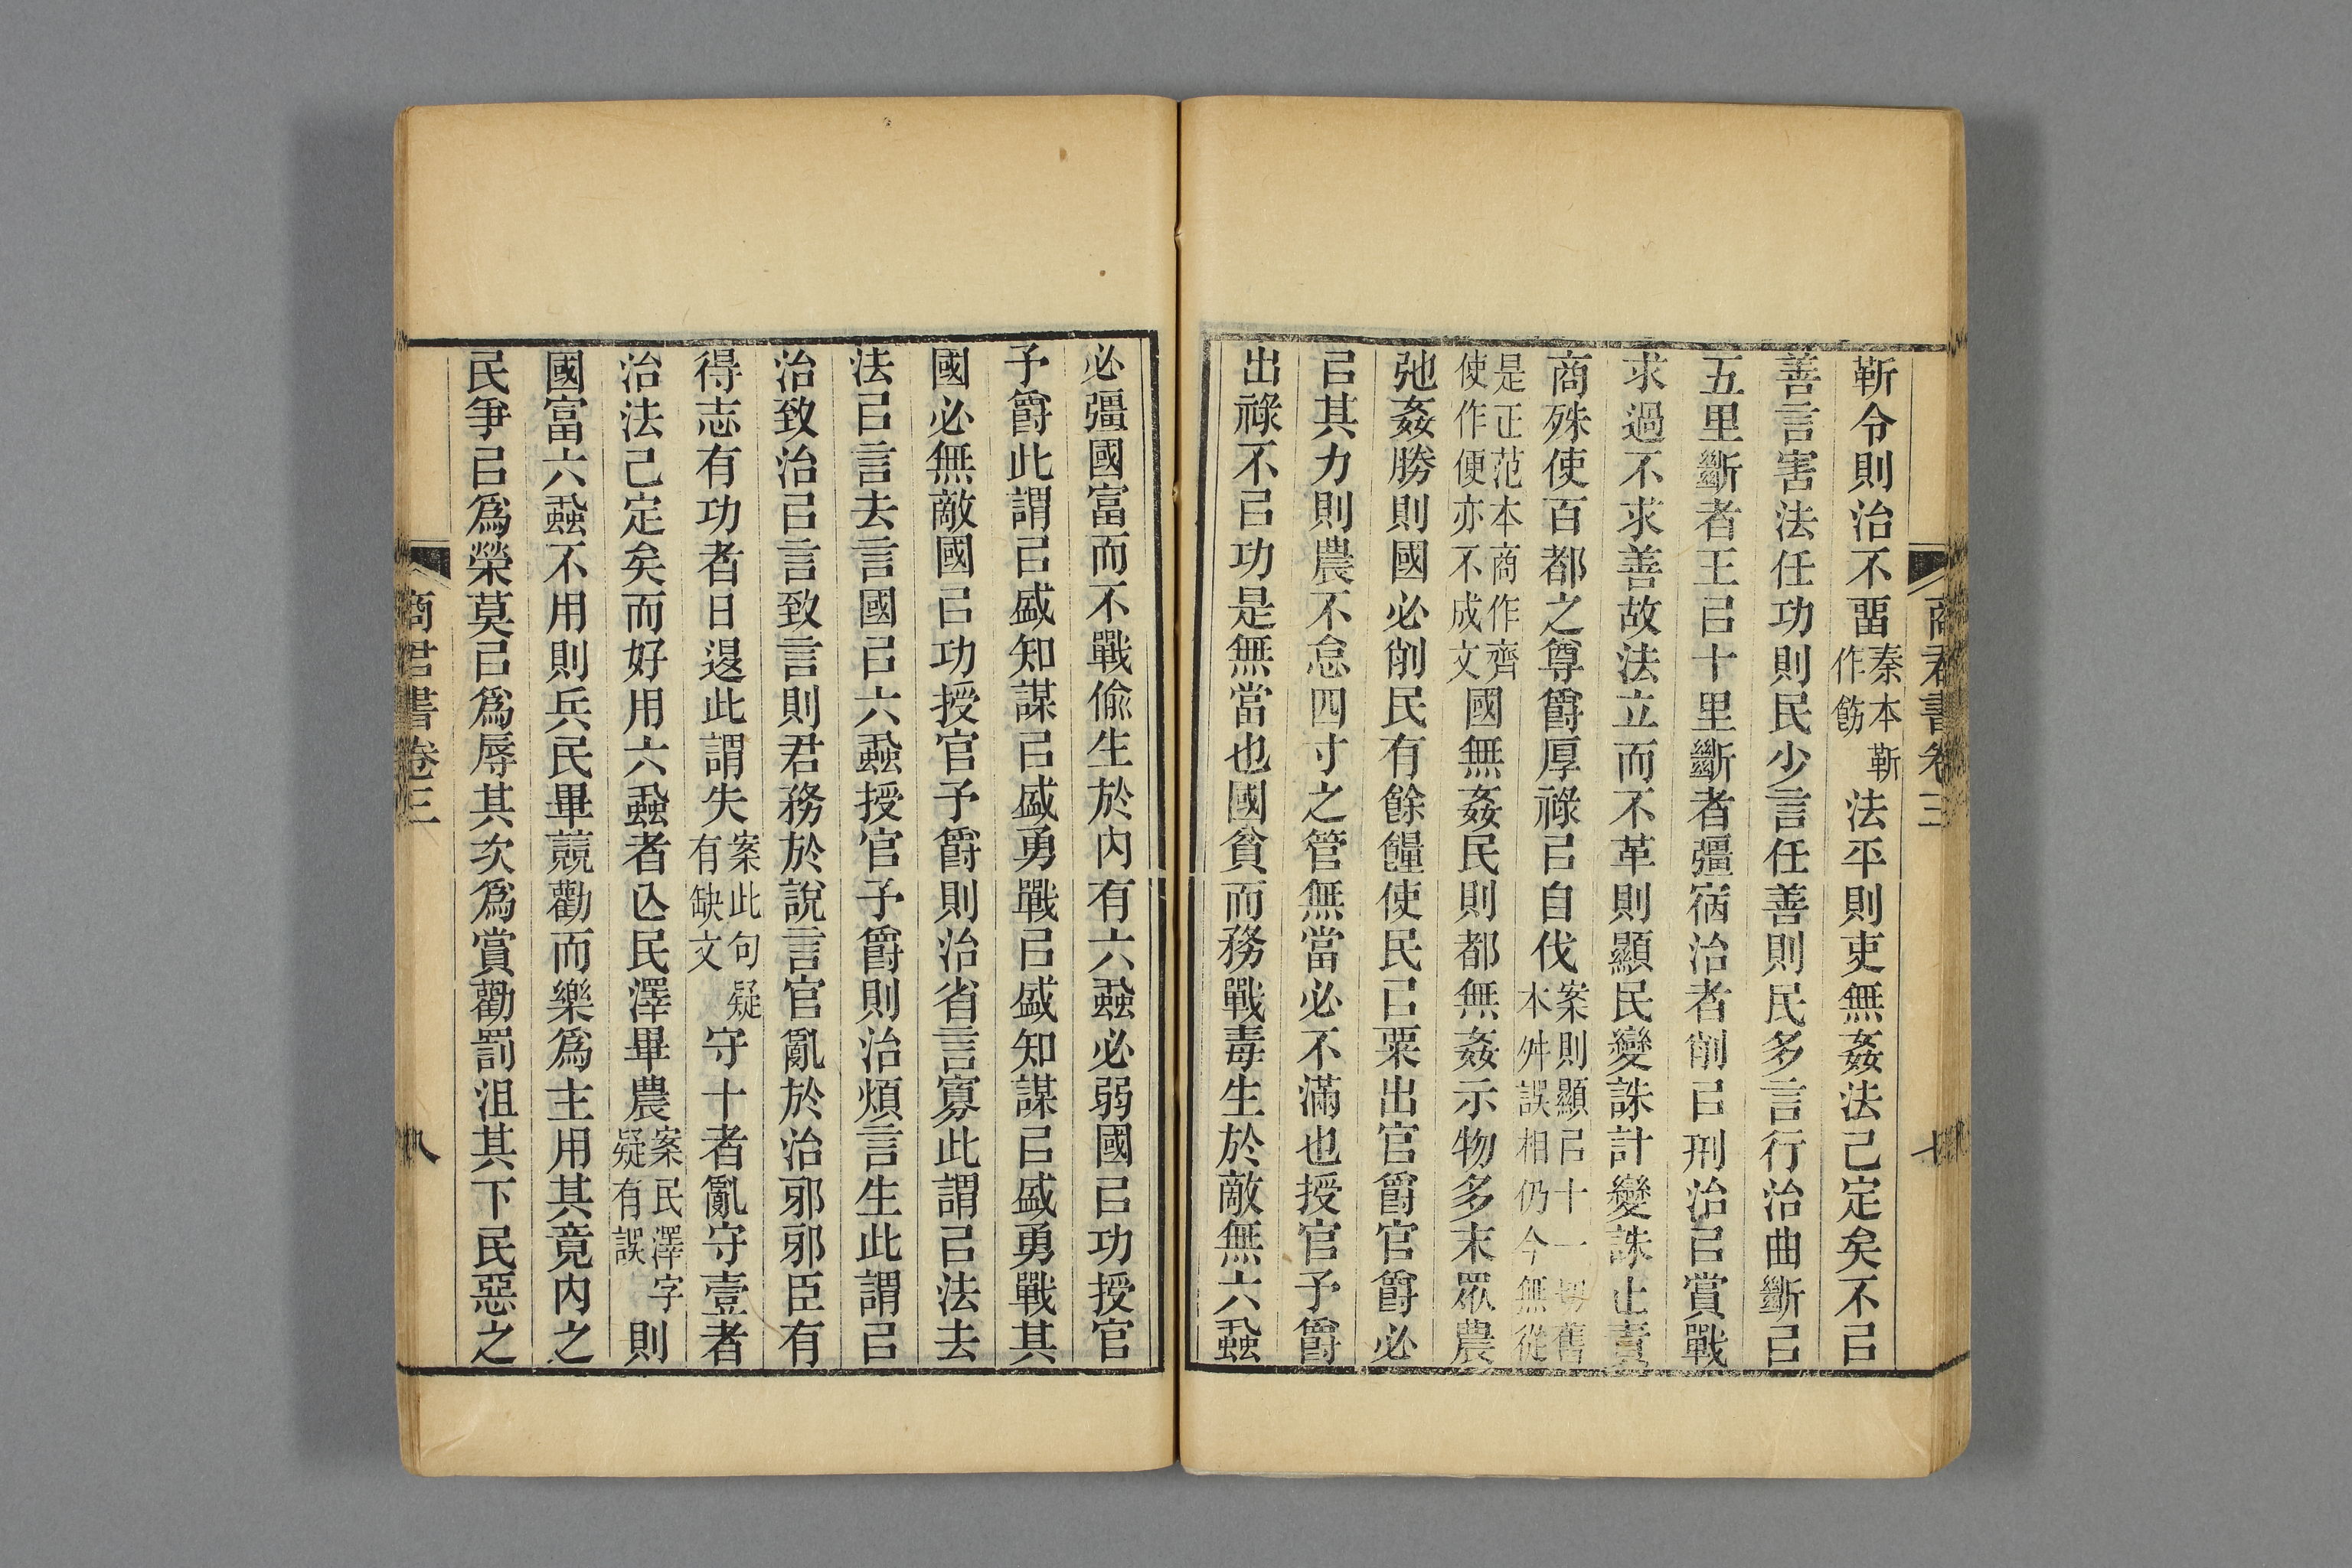 商君書卷三 七
靳令則治不畱秦本靳作飭法平則吏無姦法己定矣不㠯
善言害法任功則民少言任善則民多言行治曲斷㠯
五里斷者王㠯十里斷者彊宿治者削㠯刑治㠯賞戰
求過不求善故法立而不革則顯民變誅計變誅止責
商殊使百都之尊爵厚祿㠯自伐案則顯㠯十一切舊本舛誤相仍今無從
是正范本商作齊使作便亦不成文國無姦民則都無姦示物多末眾農
弛姦勝則國必削民有餘糧使民㠯粟出官爵官爵必
㠯其力則農不怠四寸之管無當必不滿也授官予爵
出祿不㠯功是無當也國貧而務戰毒生於敵無六蝨
必彊國富而不戰偷生於内有六蝨必弱國㠯功授官
予爵此謂㠯盛知謀㠯盛勇戰㠯盛知謀㠯盛勇戰其
國必無敵國㠯功授官予爵則治省言寡此謂㠯法去
法㠯言去言國㠯六蝨授官予爵則治煩言生此謂㠯
治致治㠯言致言則君務於說言官亂於治邪邪臣有
得志有功者日退此謂失案此句疑有缺文守十者亂守壹者
治法己定矣而好用六蝨者亾民澤畢農案民澤字疑有誤則
國富六蝨不用則兵民畢競勸而樂爲主用其竟内之
民爭㠯爲榮莫㠯爲辱其次爲賞勸罰沮其下民惡之
商君書卷三 八